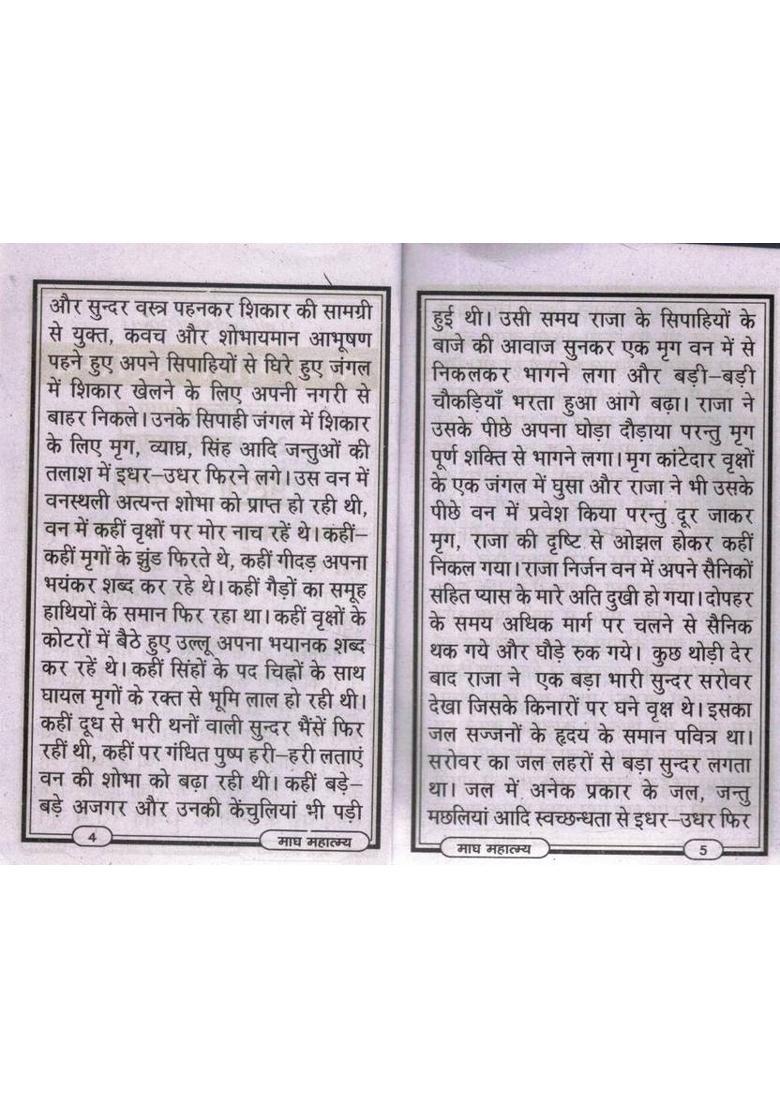 और सुन्दर वस्त्र पहनकर शिकार की सामग्री
से युक्त, कवच और शोभायमान आभूषण
पहने हुए अपने सिपाहियों से घिरे हुए जंगल
में शिकार खेलने के लिए अपनी नगरी से
बाहर निकले। उनके सिपाही जंगल में शिकार
के लिए मृग, व्याघ्र, सिंह आदि जन्तुओं की
तलाश में इधर–उधर फिरने लगे। उस वन में
वनस्थली अत्यन्त शोभा को प्राप्त हो रही थी,
वन में कहीं वृक्षों पर मोर नाच रहें थे। कहीं–
कहीं मृगों के झुंड फिरते थे, कहीं गीदड़ अपना
भयंकर शब्द कर रहे थे। कहीं गैड़ों का समूह
हाथियों के समान फिर रहा था। कहीं वृक्षों के
कोटरों में बैठे हुए उल्लू अपना भयानक शब्द
कर रहें थे। कहीं सिंहों के पद चिह्नों के साथ
घायल मृगों के रक्त से भूमि लाल हो रही थी।
कहीं दूध से भरी थनों वाली सुन्दर भैंसें फिर
रहीं थी, कहीं पर गंधित पुष्प हरी–हरी लताएं
वन की शोभा को बढ़ा रही थी। कहीं बड़े–
बड़े अजगर और उनकी केंचुलियां भी पड़ी
4
माघ महात्म्य
हुई थी। उसी समय राजा के सिपाहियों के
बाजे की आवाज सुनकर एक मृग वन में से
निकलकर भागने लगा और बड़ी–बड़ी
चौकड़ियाँ भरता हुआ आगे बढ़ा। राजा ने
उसके पीछे अपना घोड़ा दौड़ाया परन्तु मृग
पूर्ण शक्ति से भागने लगा। मृग कांटेदार वृक्षों
के एक जंगल में घुसा और राजा ने भी उसके
पीछे वन में प्रवेश किया परन्तु दूर जाकर
मृग, राजा की दृष्टि से ओझल होकर कहीं
निकल गया। राजा निर्जन वन में अपने सैनिकों
सहित प्यास के मारे अति दुखी हो गया। दोपहर
के समय अधिक मार्ग पर चलने से सैनिक
थक गये और घौड़े रुक गये। कुछ थोड़ी देर
बाद राजा ने एक बड़ा भारी सुन्दर सरोवर
देखा जिसके किनारों पर घने वृक्ष थे। इसका
जल सज्जनों के हृदय के समान पवित्र था।
सरोवर का जल लहरों से बड़ा सुन्दर लगता
था। जल में अनेक प्रकार के जल, जन्तु
मछलियां आदि स्वच्छन्धता से इधर–उधर फिर
माघ महात्म्य
5